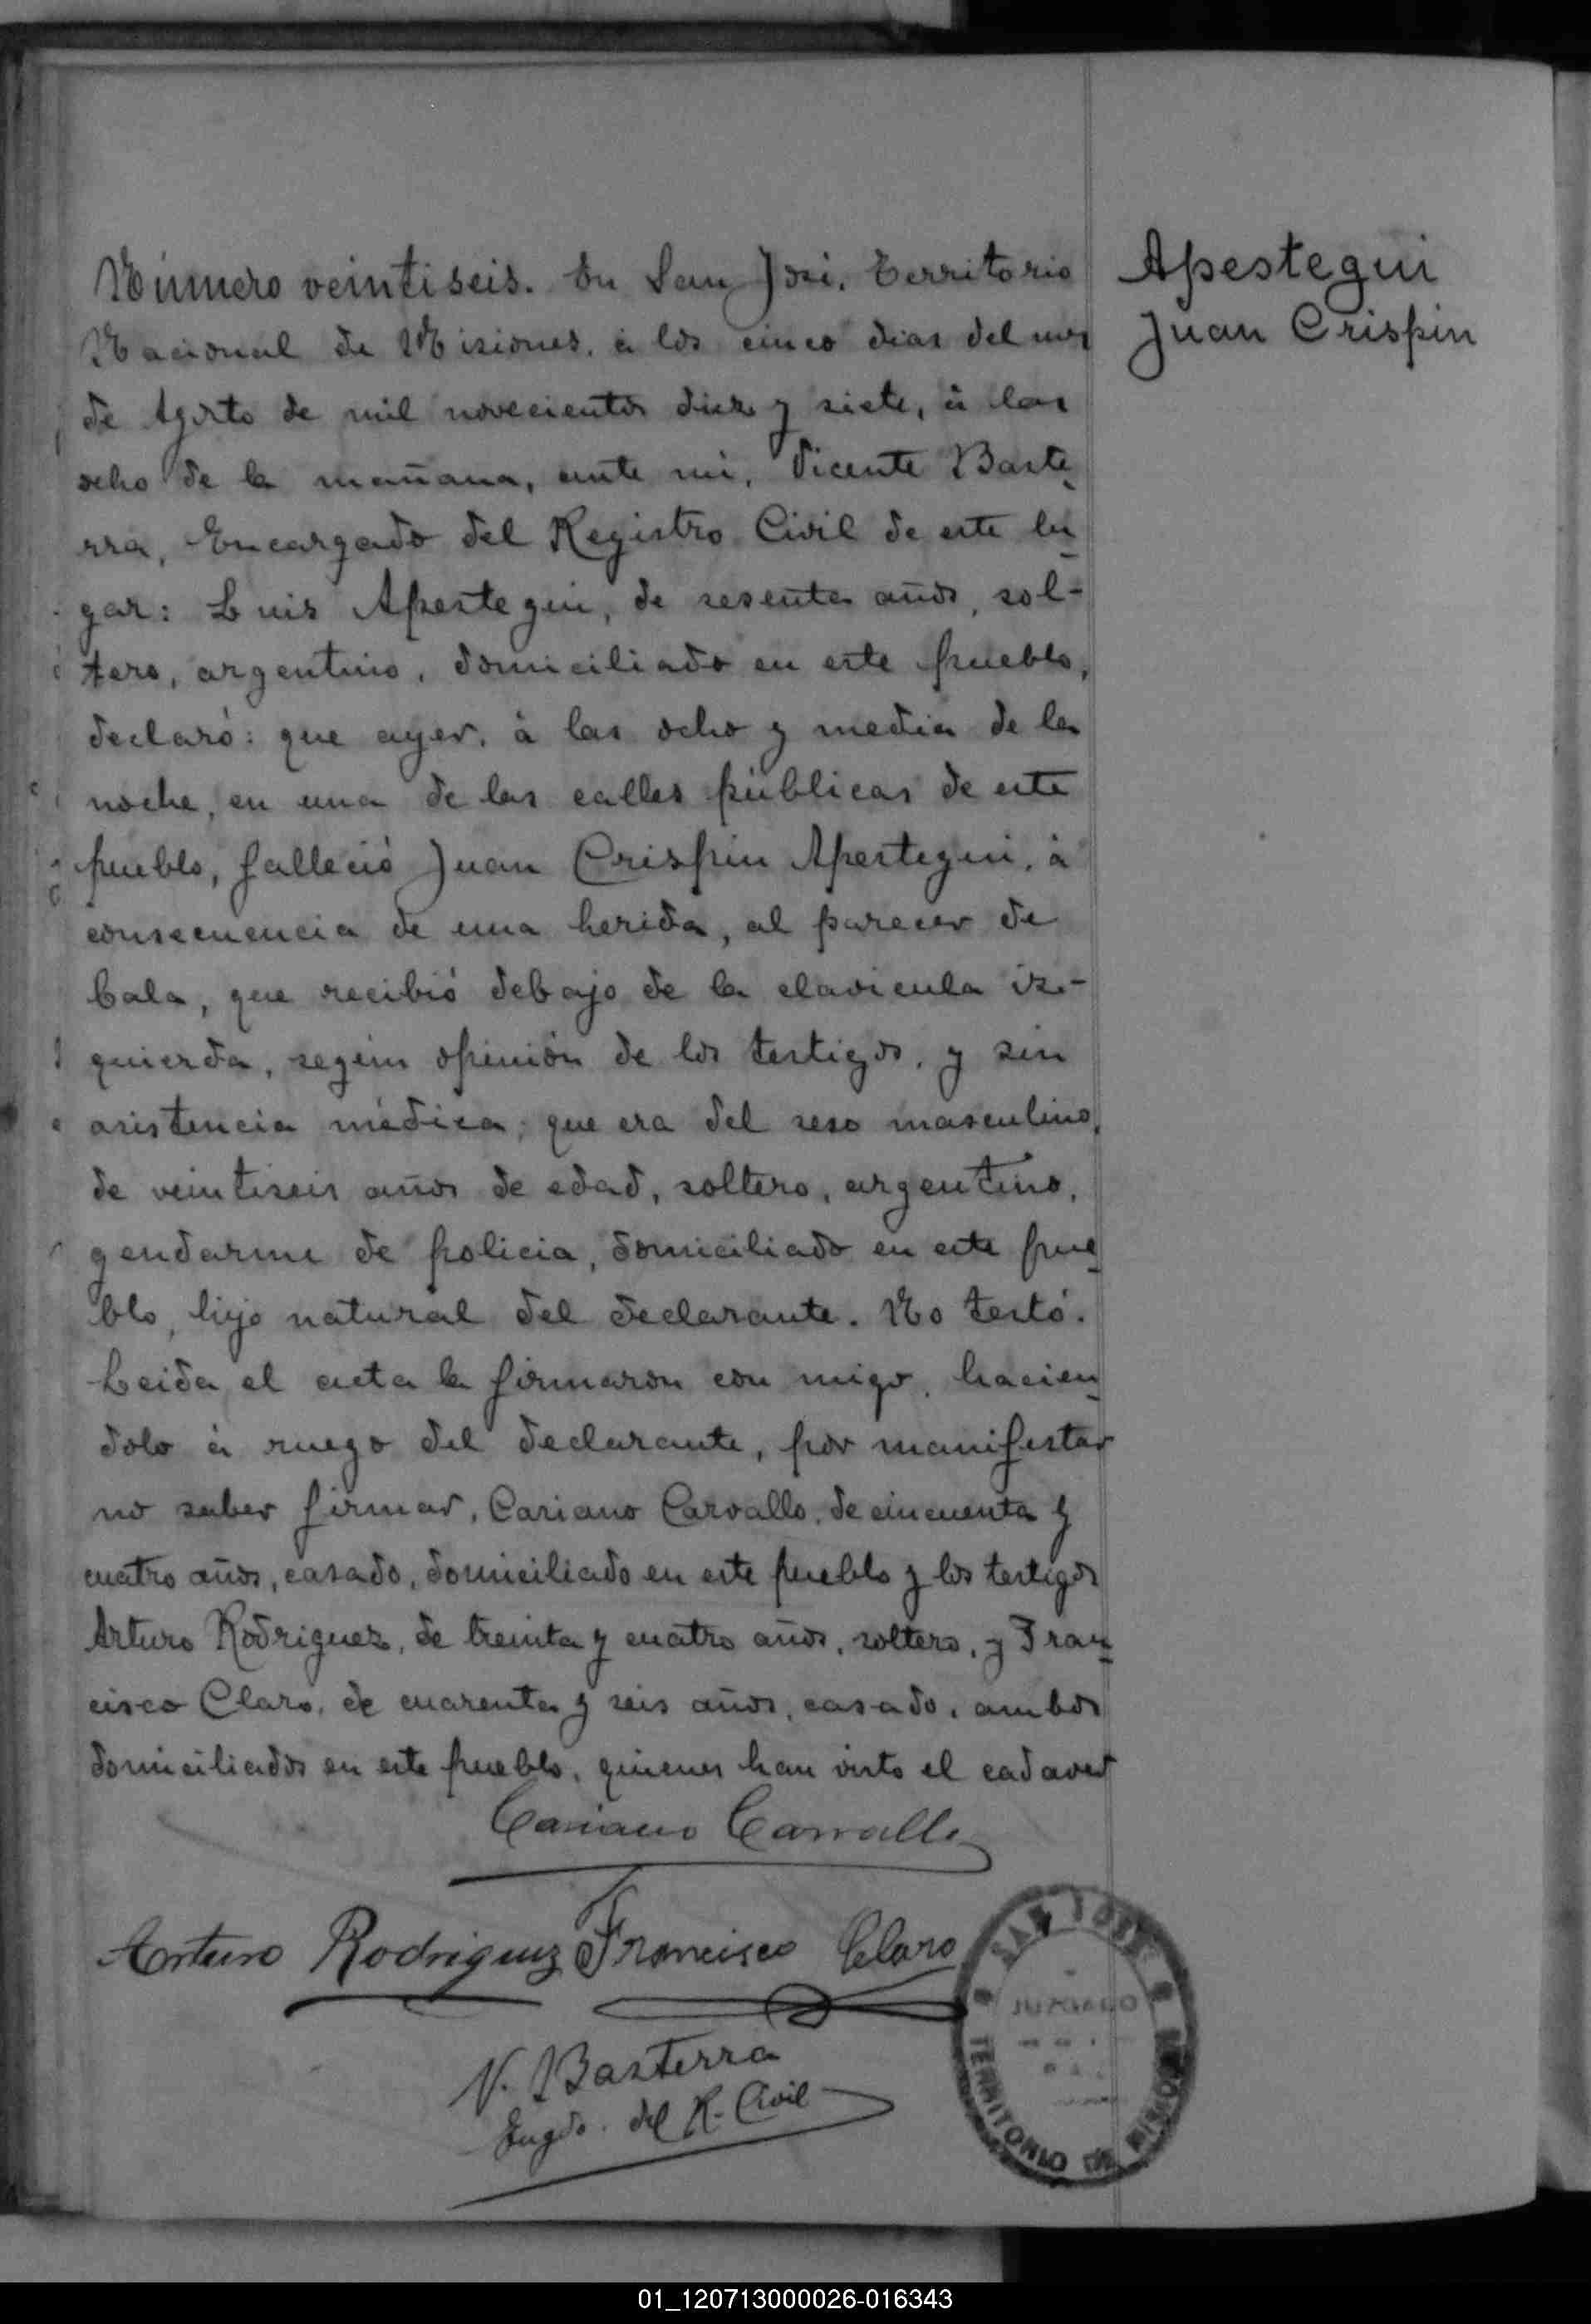 Número veintiseis. En San José, Territorio
Nacional de Misiones, á los cinco dias del mes
de Agosto de mil novecientos diez y siete, á las
ocho de la mañana, ante mí, Vicente Baste-
rra, Encargado del Registro Civil de este lu-
gar: Luis Apestegui, de sesenta años, sol-
tero, argentino, domiciliado en este pueblo,
declaró: que ayer, á las ocho y media de la
noche, en una de las calles públicas de este
pueblo, falleció Juan Crispin Apestegui, á
consecuencia de una herida, al parecer de
bala, que recibió debajo de la clavicula iz-
quierda, según opinión de los testigos, y sin
asistencia médica; que era del sexo masculino,
de veintiseis años de edad, soltero, argentino,
gendarme de policia, domiciliado en este pue-
blo, hijo natural del declarante. No testó.
Leida el acta la firmaron con migo, hacien-
dolo á ruego del declarante, por manifestar
no saber firmar, Cariano Carvallo, de cincuenta y
cuatro años, casado, domiciliado en este pueblo y los testigos
Arturo Rodriguez, de treinta y cuatro años, soltero, y Fran-
cisco Claro, de cuarenta y seis años, casado, ambos
domiciliados en este pueblo, quienes han visto el cadaver
Cariano Carvallo
Arturo Rodriguez Francisco Claro
V. Basterra
Engdo. del R. Civil
Apestegui
Juan Crispin
SAN JOSÉ
JUZGADO
TERRITORIO DE MISIONES
01_120713000026-016343